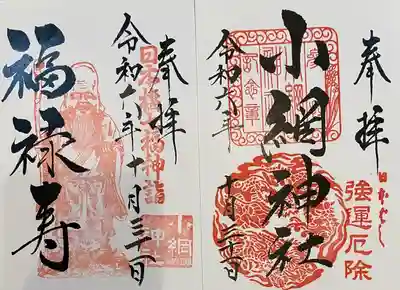 奉拝
日本橋七福神詣
令和六年十月三十一日
福禄寿
小網神社
奉拝
強運厄除
小網神社
令和六年
十月三十一日